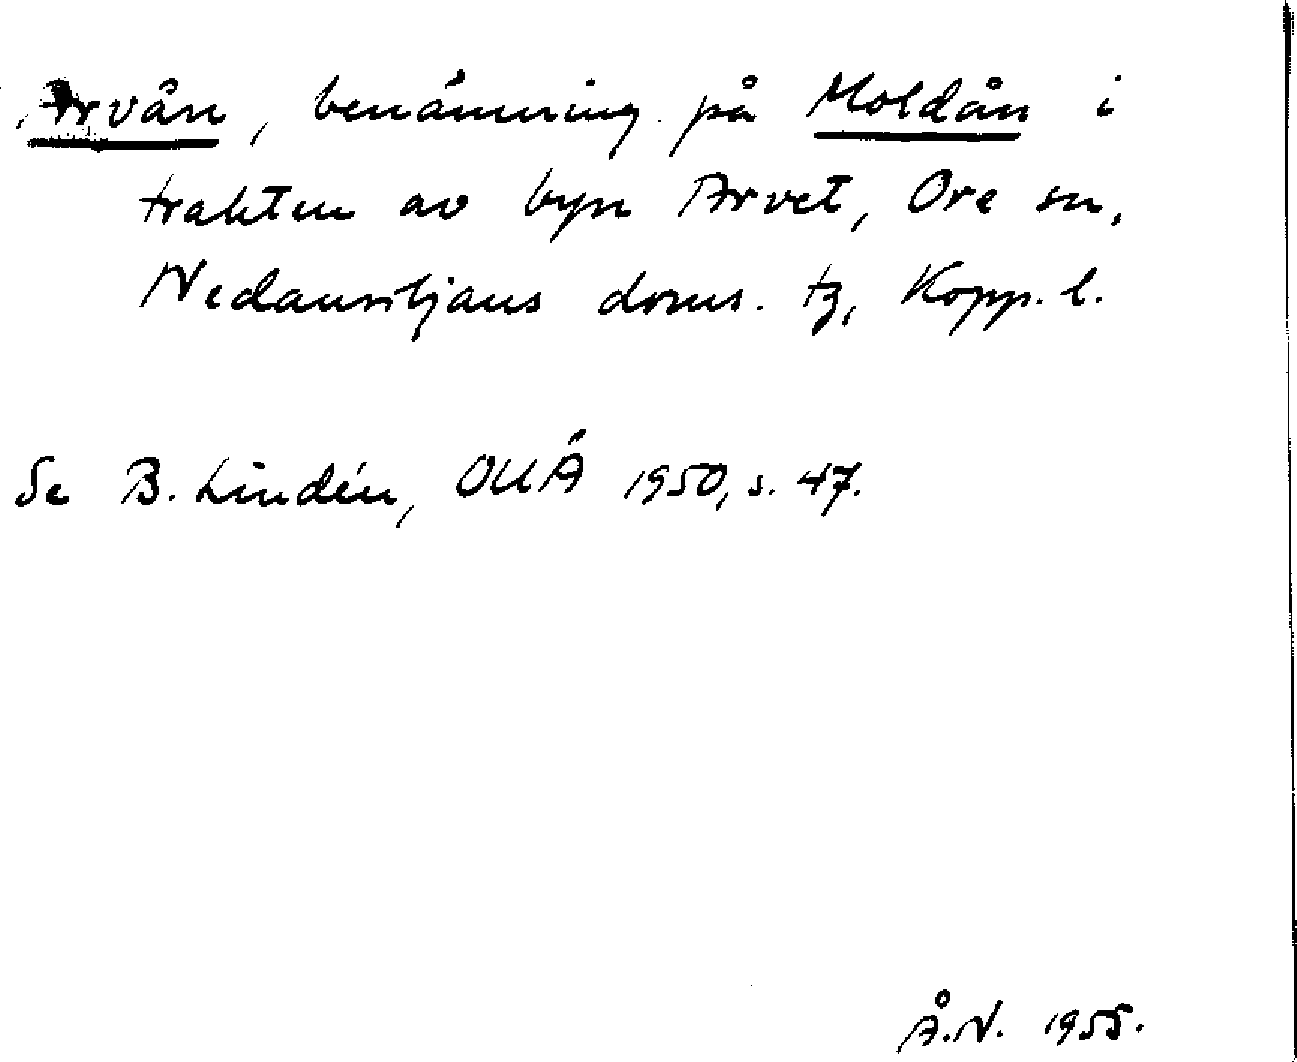 Arvån, benämning på Moldån i
trakten av byn Arvet, Ore sn,
Nedansiljans doms. tg, Kopp. l.
Se B. Lindén, OUÅ 1950, s. 47.
Å.N. 1955.